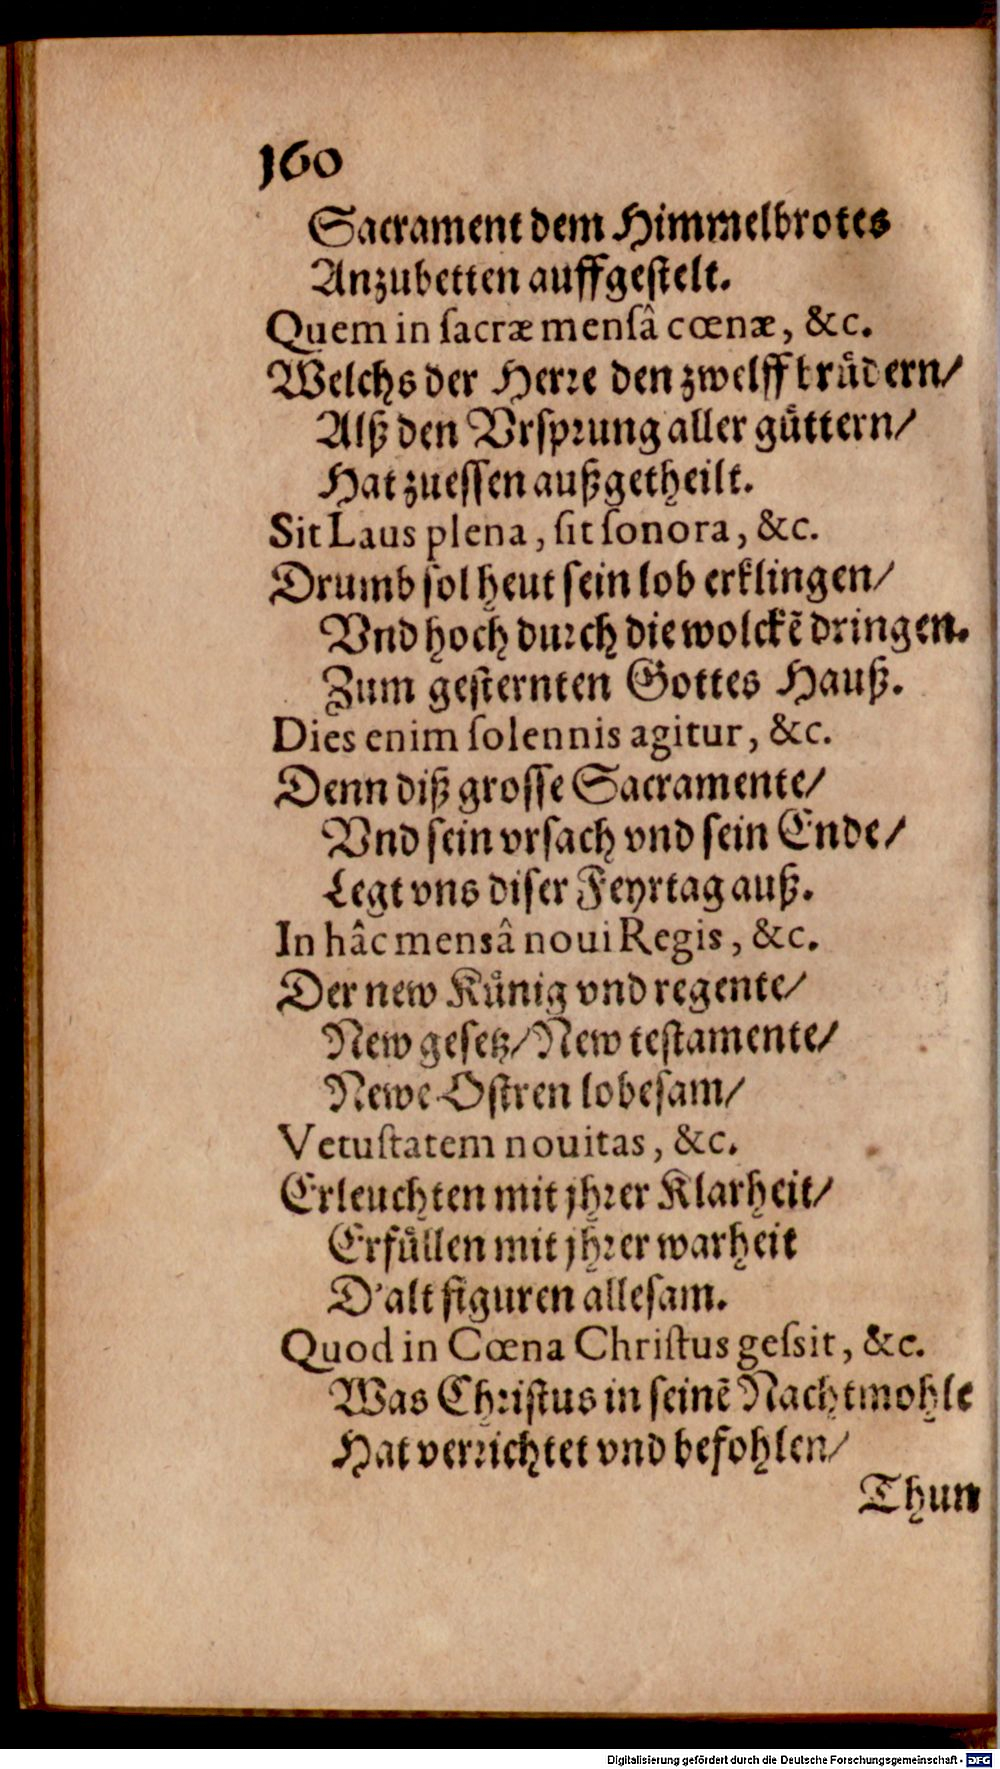 160
Sacrament dem Himmelbrotes
Anzubetten auffgestelt.
Quem in ſacræ menſâ cœnæ, &c.
Welchs der Herre den zwelff bruͤdern/
Alß den Vrſprung aller guͤttern/
Hat zueſſen außgetheilt.
Sit Laus plena, ſit ſonora, &c.
Drumb ſol heut ſein lob erklingen/
Vnd hoch durch die wolckẽ dringen.
Zum geſternten Gottes Hauß.
Dies enim ſolennis agitur, &c.
Denn diß groſſe Sacramente/
Vnd ſein vrſach vnd ſein Ende/
Legt vns diſer Feyrtag auß.
In hâc mensâ noui Regis, &c.
Der new Kuͤnig vnd regente/
New geſetz/ New teſtamente/
Newe Oſtren lobeſam/
Vetuſtatem nouitas, &c.
Erleuchten mit jhrer Klarheit/
Erfuͤllen mit jhrer warheit
D'alt figuren alleſam.
Quod in Cœna Chriſtus geſsit, &c.
Was Chriſtus in ſeinẽ Nachtmohle
Hat verrichtet vnd befohlen/
Thun
Digitalisierung gefördert durch die Deutsche Forschungsgemeinschaft - DFG